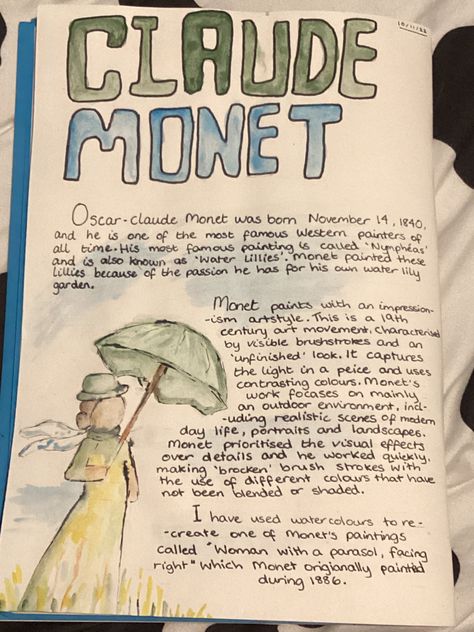 CLAUDE
10/11/22
MONET
Oscar-claude Monet was born November 14, 1840,
and he is one of the most famous Western painters of
all time. His most famous painting is called 'Nymphéas'
and is also known as 'Water Lillies'. Monet painted these
lillies because of the passion he has for his own water lily
garden.
Monet paints with an impression-
-ism artstyle. This is a 19th
century art movement, characterised
by visible brushstrokes and an
'unfinished' look. It captures
the light in a peice and uses
contrasting colours. Monet's
work focases on mainly
an outdoor environment, incl-
-uding realistic scenes of modern
day life, portraits and landscapes.
Monet prioritised the visual effects
over details and he worked quickly,
making 'brocken' brush strokes with
the use of different colours that have
not been blended or shaded.
I have used watercolours to re-
-create one of Monet's paintings
called "Woman with a parasol, facing
right" which Monet origionally painted
during 1886.